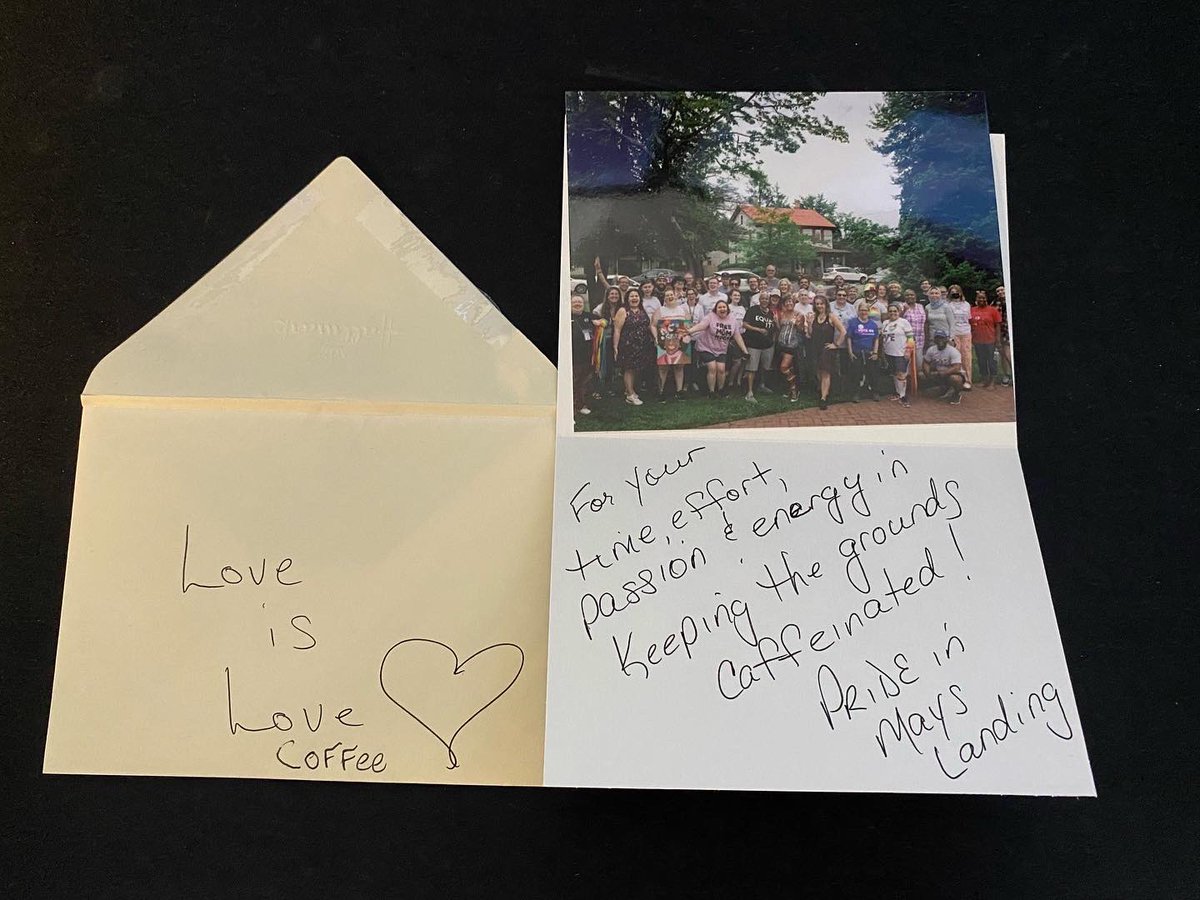 Love
is
Love
Coffee
For your
time, effort,
passion & energy in
Keeping the grounds
Caffeinated!
PRIDE in
Mays
Landing
FREE
MOM
HUGS